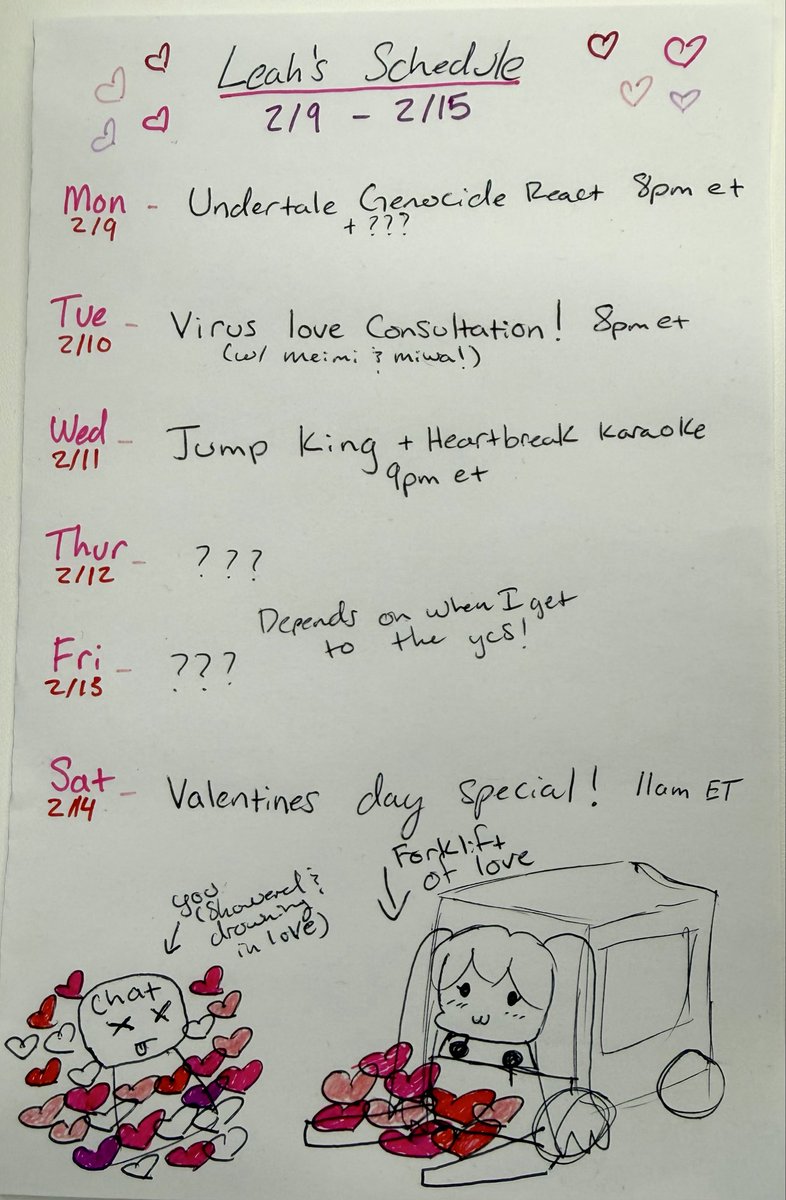 Leah's Schedule
2/9 - 2/15
Mon - Undertale Genocide React 8pm et
2/9
+ ???
Tue - Virus love Consultation! 8pm et
2/10
(w/ meimi & miwa!)
Wed - Jump King + Heartbreak Karaoke
2/11
9pm et
Thur - ???
2/12
Depends on when I get
to the yes!
Fri - ???
2/13
Sat - Valentines day special! 11am ET
2/14
Forklift
of love
you
(showered &
drowning
in love)
Chat